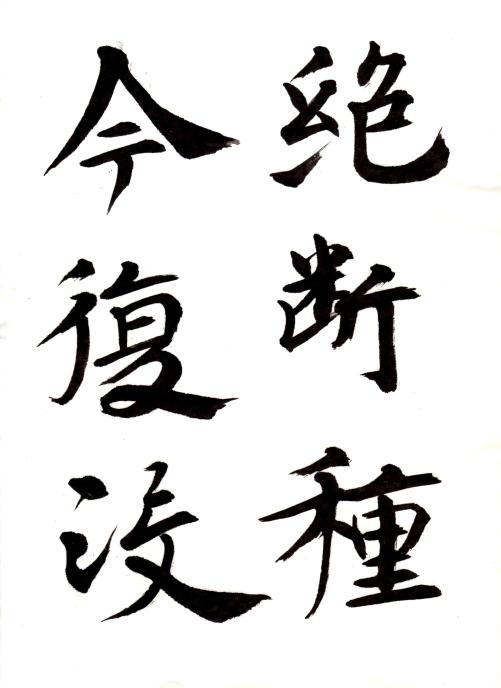 絶断種
今復没